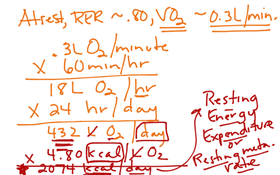 At rest, RER ~ .80, VO2 ~ 0.3L/min
.3L O2/minute
X 60 min/hr
18L O2/hr
X 24 hr/day
432 L O2/day
X 4.80 kcal/L O2
* 2074 kcal/day
Resting
Energy
Expenditure
or
Resting meta.
rate